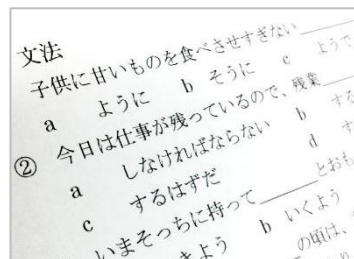 文法
子供に甘いものを食べさせすぎない
a ように b そうに c ようで
② 今日は仕事が残っているので、残業
a しなければならない b する
c するはずだ d す
いまそっちに持って とおも
きよう b いくよう
の頃は、